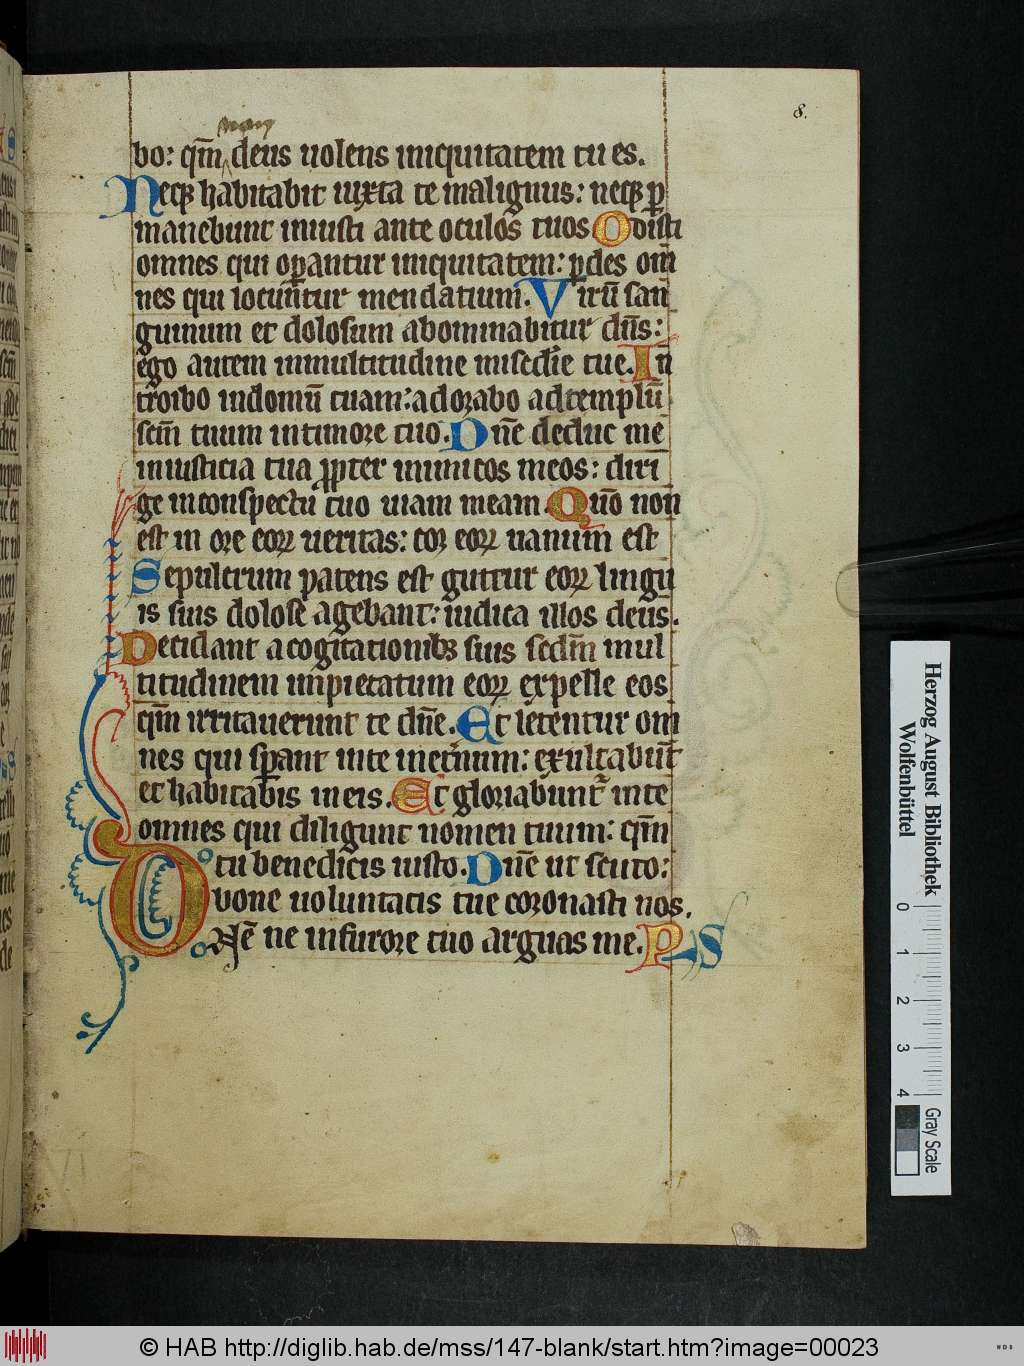 8.
non
bo: qm̄ deus uolens iniquitatem tu es.
Neqꝫ habitabit iuxta te malignus: neqꝫ ꝑ
manebunt iniusti ante oculos tuos Odisti
omnes qui oꝑantur iniquitatem: ꝑdes om̄
nes qui locunt̄ur mendatium. Virū san
guinum et dolosum abominabitur dn̄s:
ego autem inmultitudine misc̄die tue. In
troibo indomū tuam: adorabo adtemplū
sc̄m tuum intimore tuo. Dn̄e deduc me
iniusticia tua ꝓpter inimicos meos: diri
ge inconspectu tuo uiam meam. Qm̄o non
est in ore eoꝝ ueritas: cor eoꝝ uanum est
Sepulcrum patens est guttur eoꝝ lingu
is suis dolose agebant: iudica illos deus.
Decidant a cogitationibꝫ suis sedm̄ mul
titudinem impietatum eoꝝ expelle eos
qm̄ irritauerunt te dn̄e. Et letentur om
nes qui sꝑant inte inet̄num: exultabunt̄
et habitabis in eis. Et gloriabunt̄ inte
omnes qui diligunt nomen tuum: qm̄
tu benedicis iusto. Dn̄e ut scuto:
uone uoluntatis tue coronasti nos.
D Ne ne infurore tuo arguas me. PS
Herzog August Bibliothek
Wolfenbüttel
0 1 2 3 4
Gray Scale
© HAB http://diglib.hab.de/mss/147-blank/start.htm?image=00023